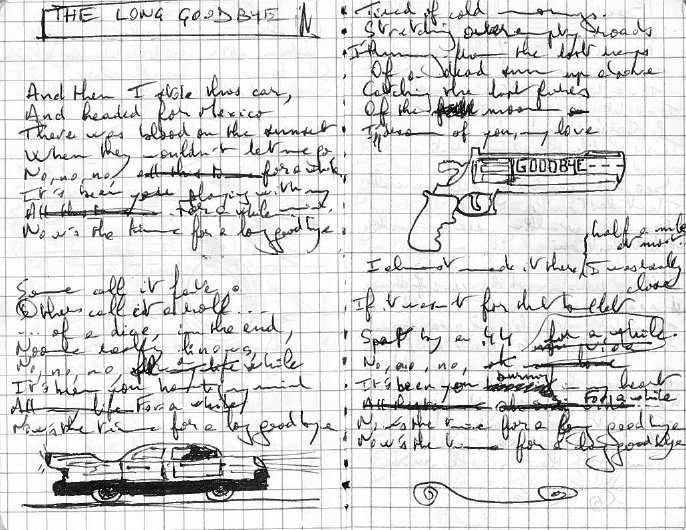 THE LONG GOODBYE
And then I stole this car,
And headed for Mexico
There was blood on the sunset
When they wouldn't let me go
No, no, no, for a while
It's been you playing with my
All the for a while mind,
Now's the time for a long goodbye
Some call it fate
Others call it a roll...
... of a dice, in the end,
No one really knows,
No, no, no, for a while
It's been you on my mind
All my life For a while
Now's the time for a long goodbye
Tired of cold
Stretching empty roads
From the last
Of a dead sun up above
Catching the last
Of the moon
of you, my love
GOODBYE
I almost made it there, I was really close
half a mile at most
If it wasn't for that bullet
Spat by a .44
for a while
No, no, no,
It's been you my heart
For a while
Now's the time for a long goodbye
Now's the time for a long goodbye